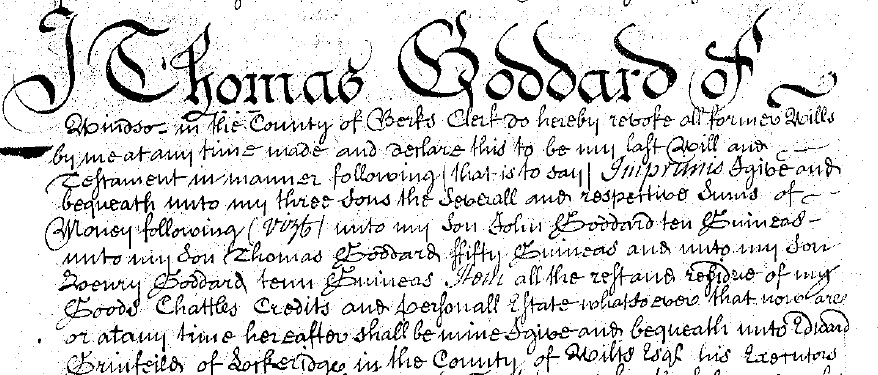 I Thomas Goddard of
Windsor in the County of Berks Clerk do hereby revoke all former Wills
by me at any time made and declare this to be my last Will and
Testament in manner following (that is to say) Imprimis I give and
bequeath unto my three Sons the severall and respective Sums of
Money following (vizt) unto my Son John Goddard ten Guineas
unto my Son Thomas Goddard ffifty Guineas and unto my Son
Henry Goddard tenn Guineas Item all the rest and residue of my
Goods Chattles Credits and personall Estate whatsoever that now are
or at any time hereafter shall be mine I give and bequeath unto Edward
Grinfeild of Lockeridge in the County of Wilts Esqr his Executors